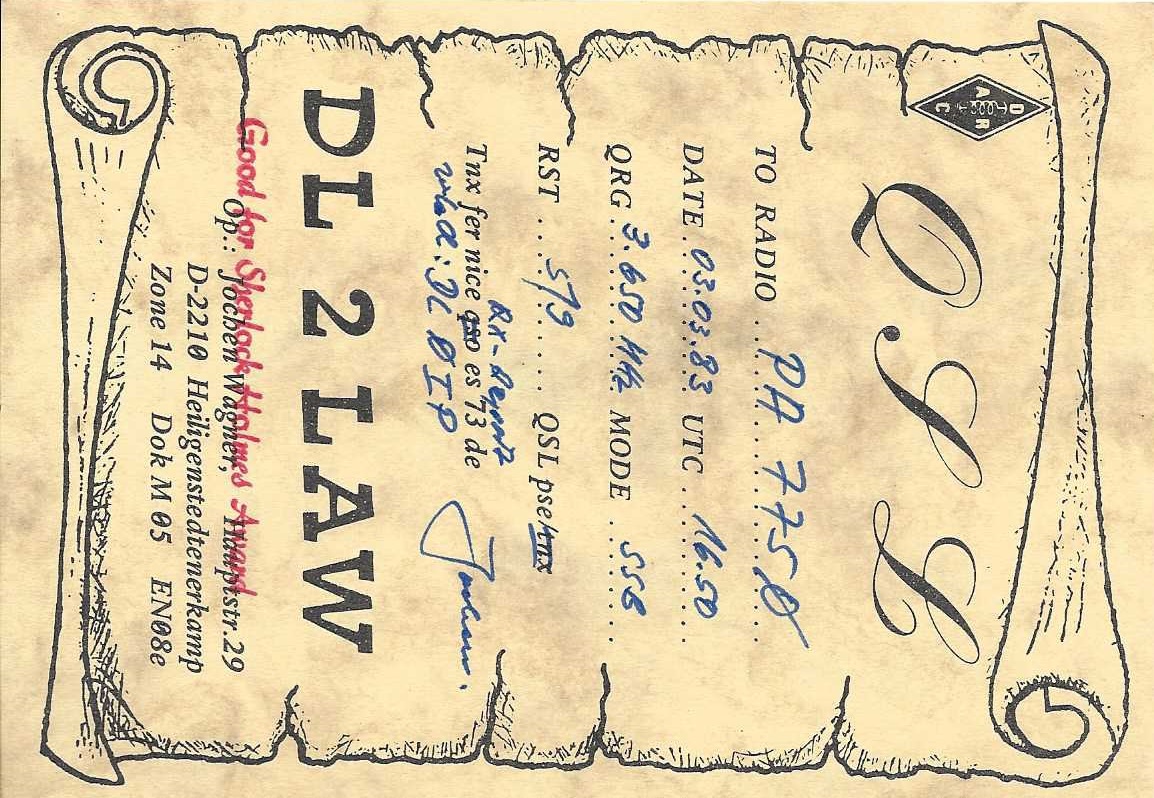 DARC
QSL
TO RADIO ... PA 7750
DATE 03.03.83 UTC 16.50
QRG 3.650 MHz MODE SSB
RST 579 QSL pse tnx
Tnx fer nice qso es 73 de
DL2LAW
Good for Sherlock Holmes Award
Op.: Jochen Wagner, Hauptstr.29
D-2210 Heiligenstedtenerkamp
Zone 14 Dok M 05 EN08e